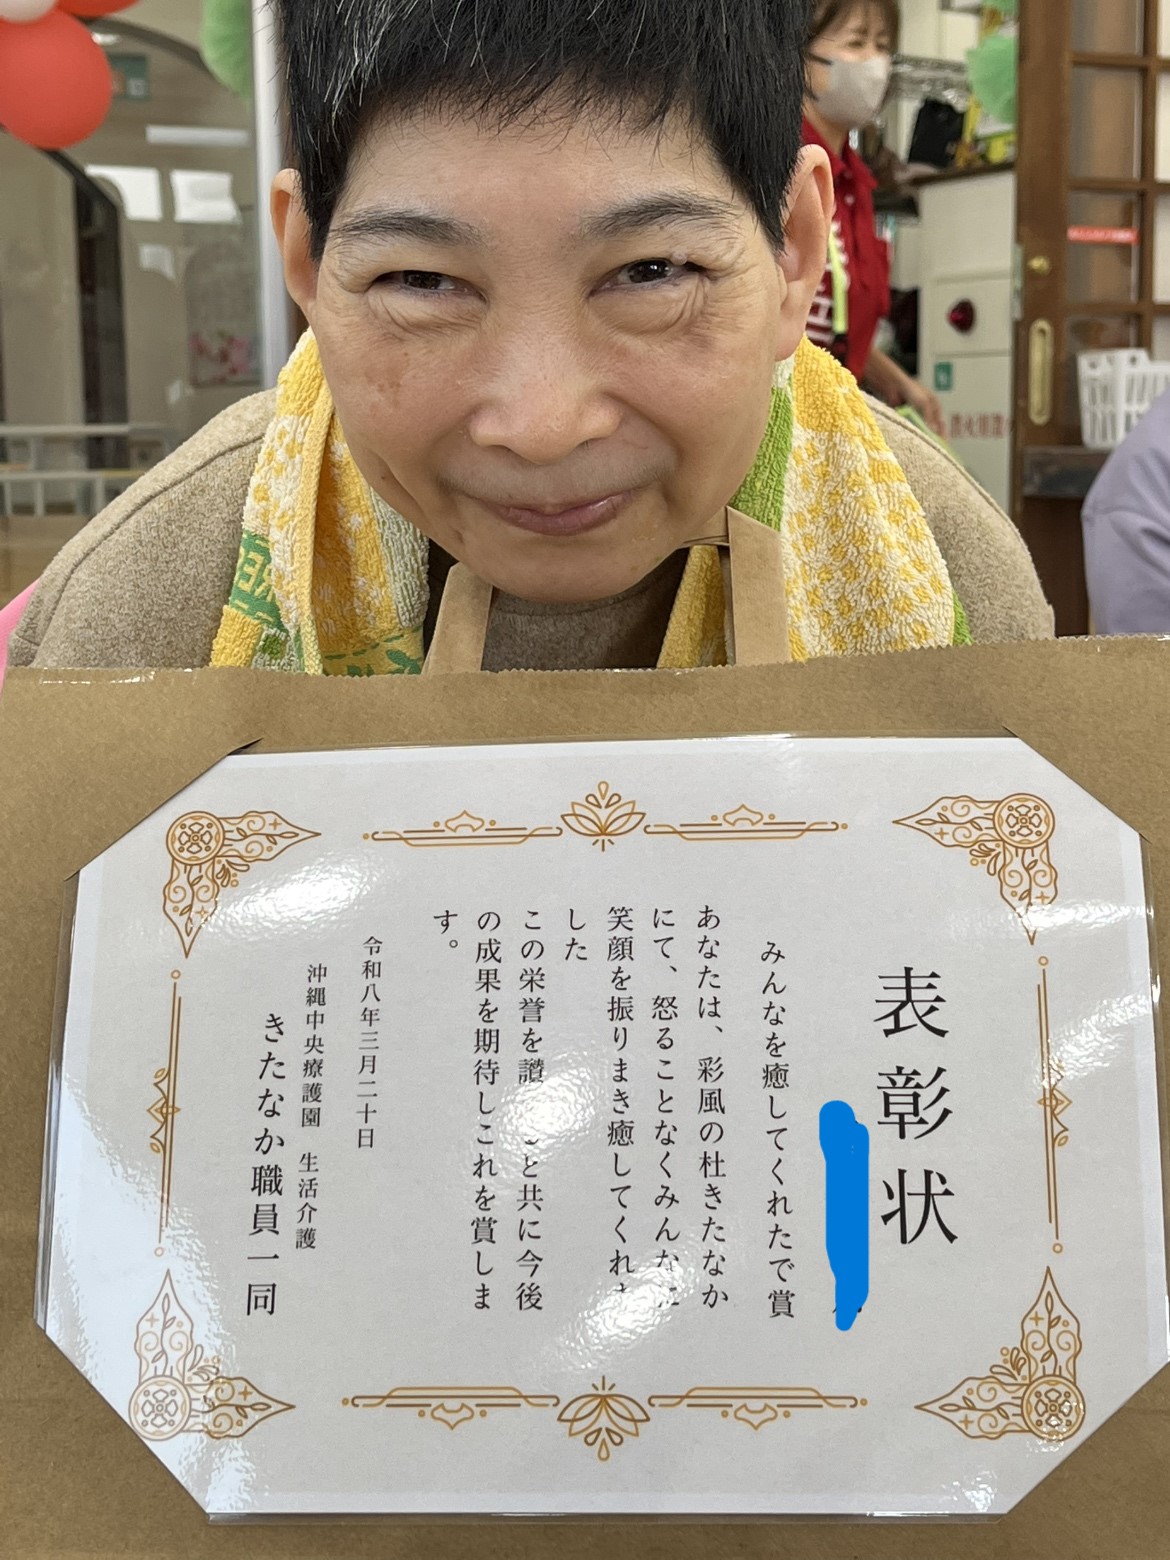 表彰状
みんなを癒してくれたで賞
あなたは、彩風の杜きたなか
にて、怒ることなくみんなに
笑顔を振りまき癒してくれ
した
この栄誉を讃 と共に今後
の成果を期待しこれを賞しま
す。
令和八年三月二十日
沖縄中央療護園 生活介護
きたなか職員一同